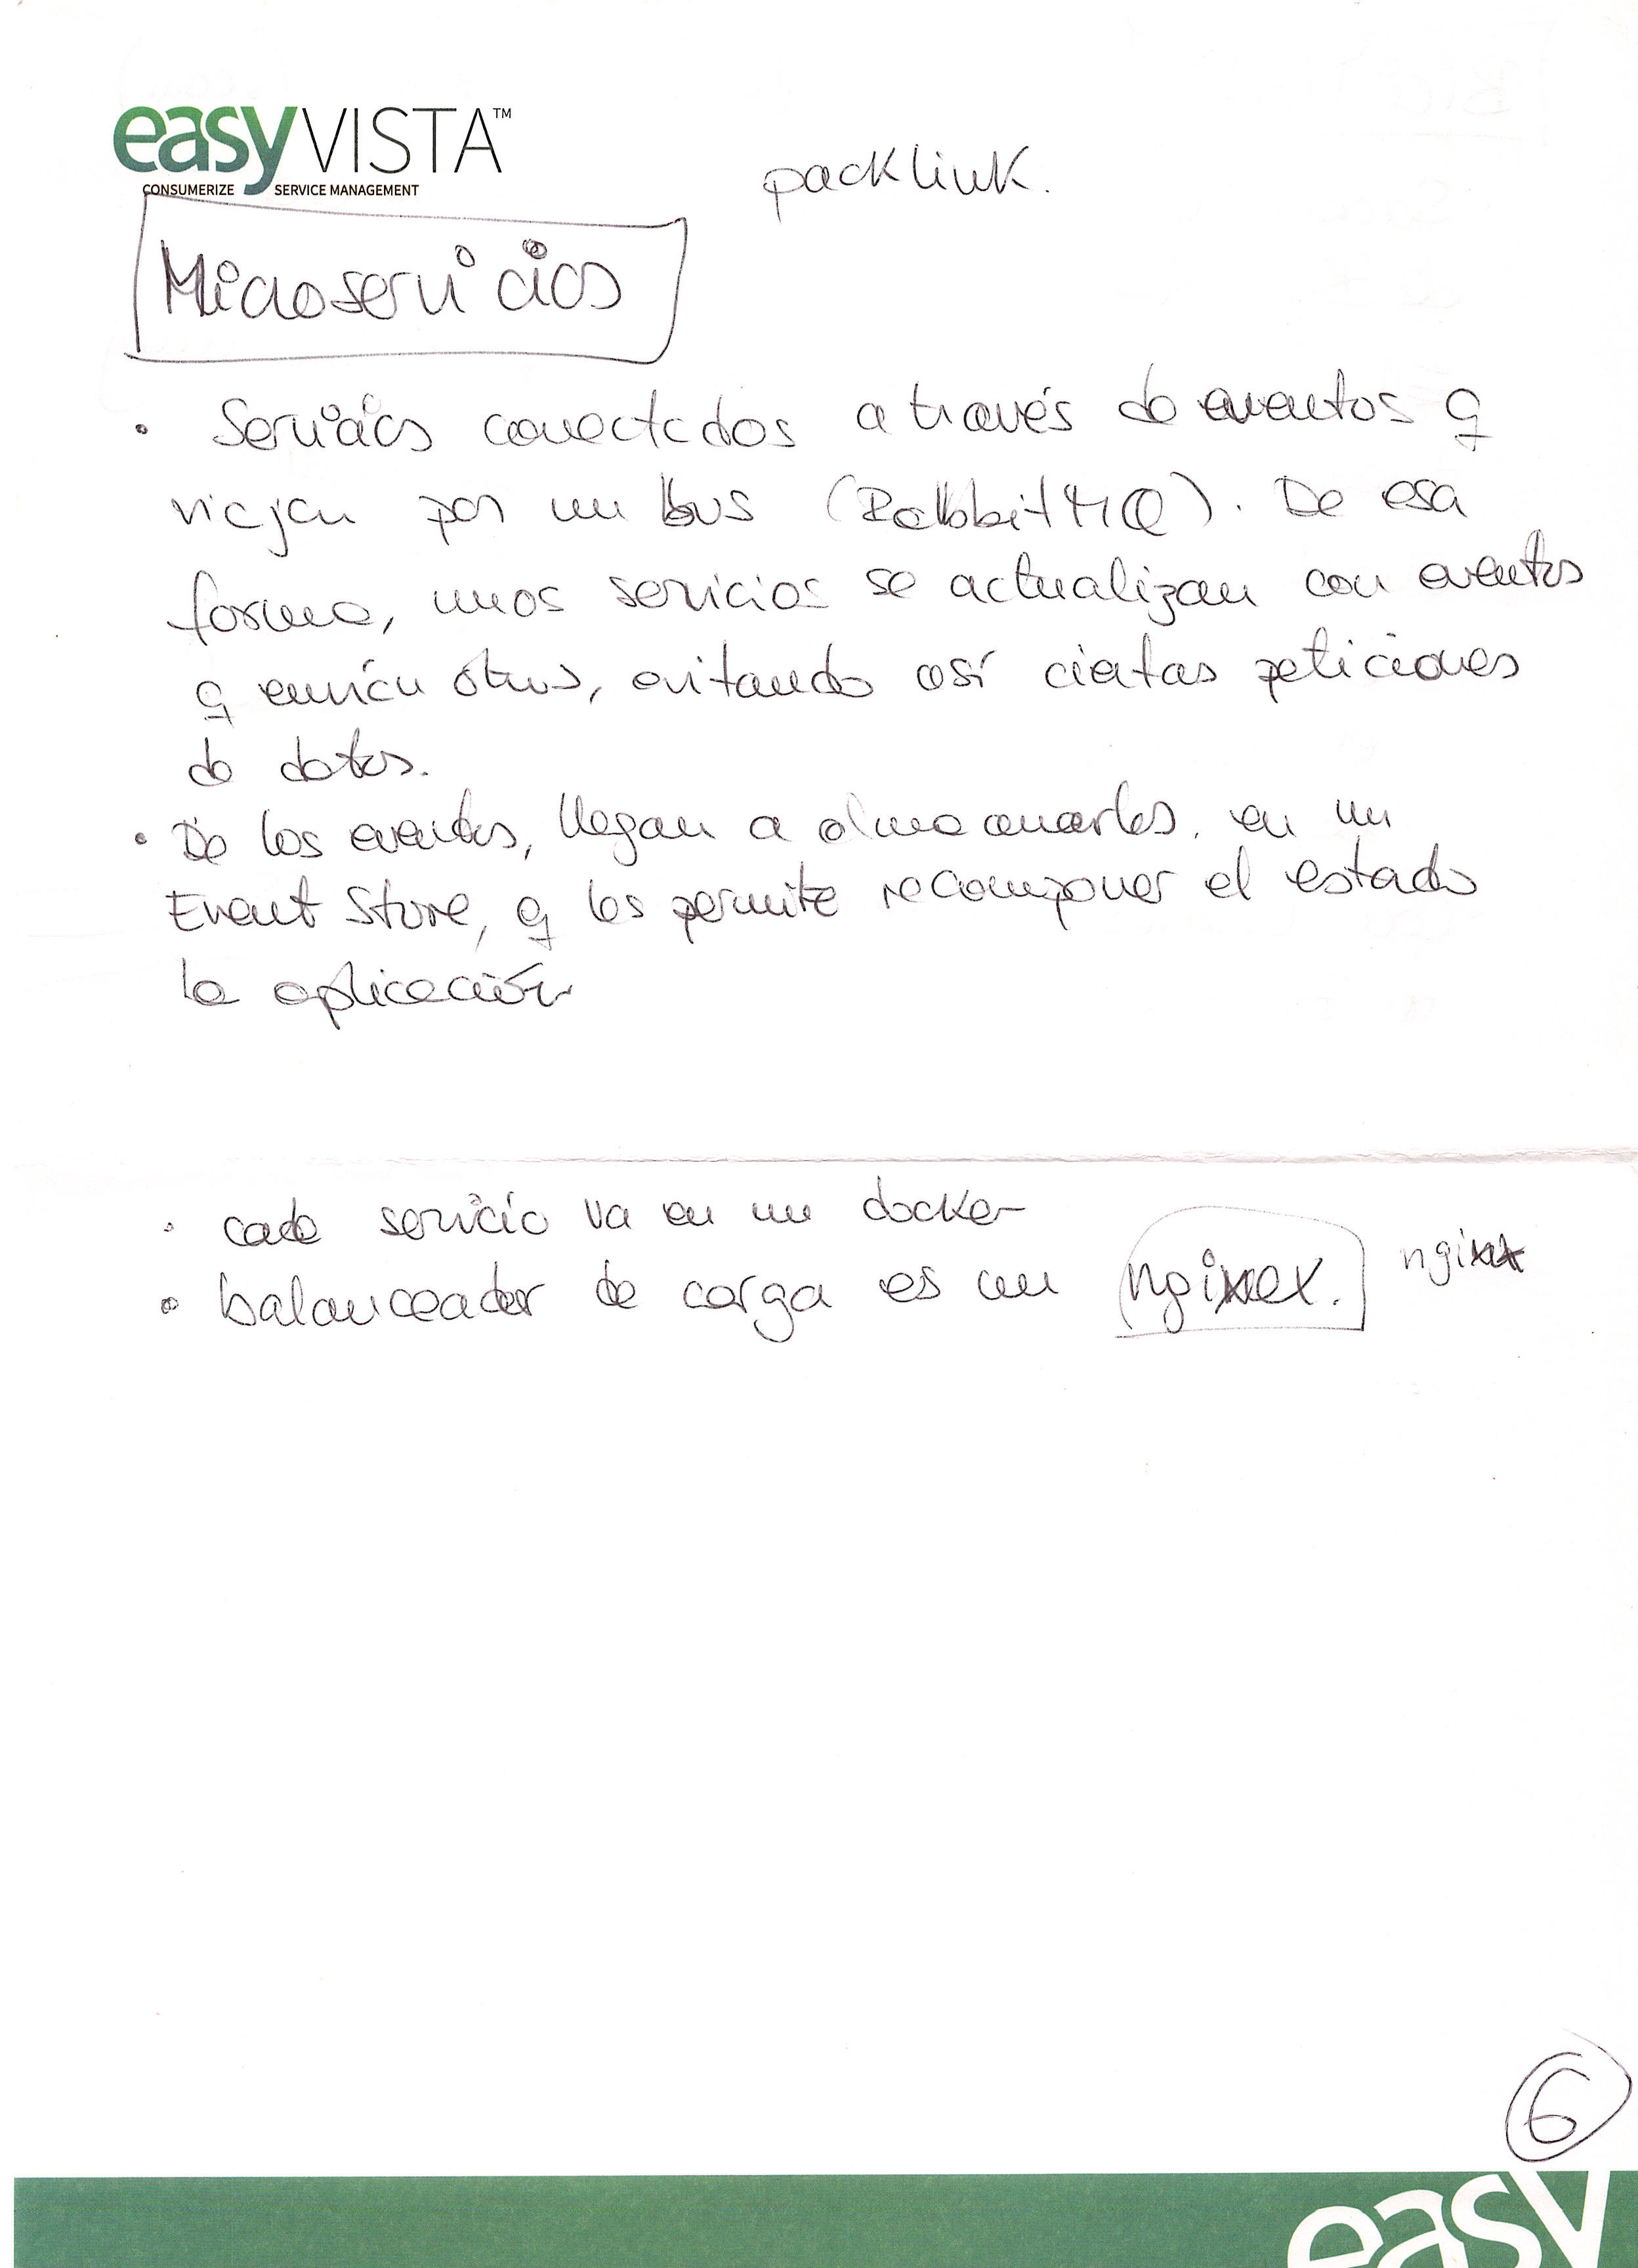 easyVISTA™
CONSUMERIZE SERVICE MANAGEMENT
packlink.
Microservicios
• Servicios conectados a través de eventos q
viajan por un bus (RabbitMQ). De esa
forma, unos servicios se actualizan con eventos
q envían otros, evitando así ciertas peticiones
de datos.
• De los eventos, llegan a almacenarlos en un
Event Store, q les permite recomponer el estado
la aplicación
• cada servicio va en un docker
• balanceador de carga es un nginex.
6
easy